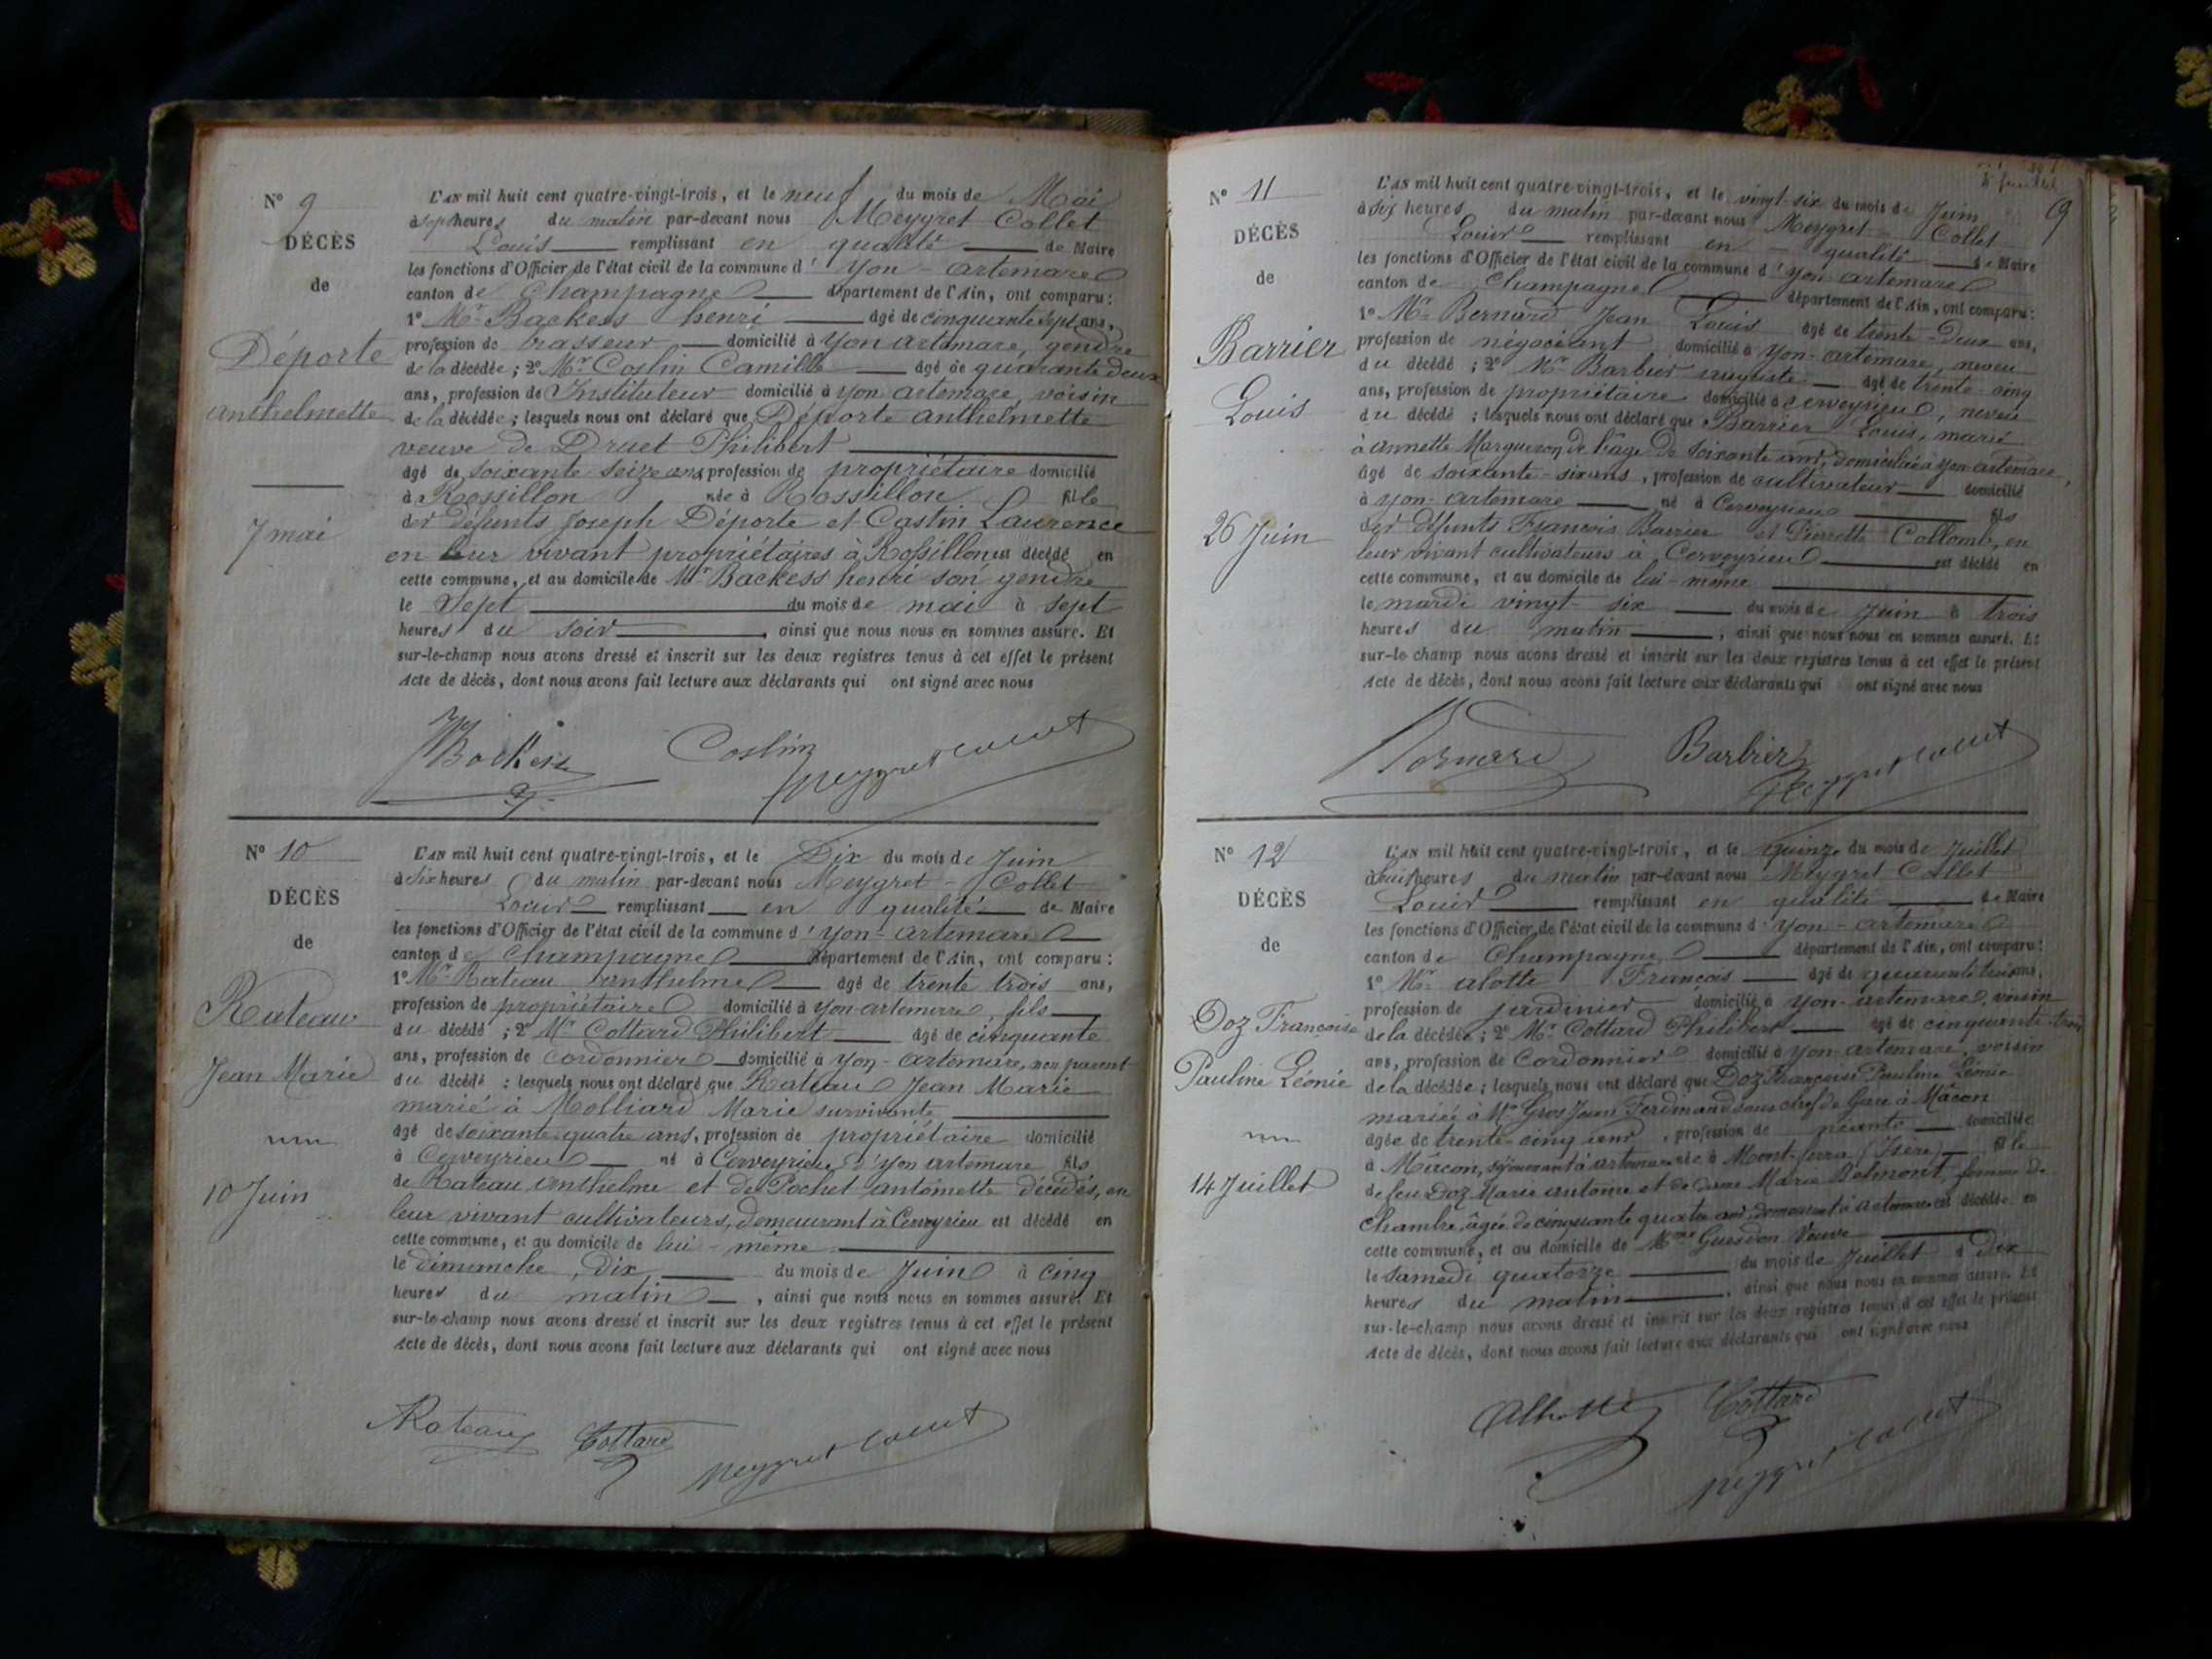 N° 9
DÉCÈS
de
Déporte
anthelmette
7 mai
L'AN mil huit cent quatre-vingt-trois, et le neuf du mois de Mai
à sept heures du matin par-devant nous Meygret Collet
Louis remplissant en qualité de Maire
les fonctions d'Officier de l'état civil de la commune d'Yon-artemare
canton de Champagne département de l'Ain, ont comparu:
1° Mr Backess henri âgé de cinquante sept ans,
profession de brasseur domicilié à Yon artemare, gendre
de la décédée; 2° Mr Costin Camille âgé de quarante deux
ans, profession de Instituteur domicilié à Yon artemare, voisin
de la décédée; lesquels nous ont déclaré que Déporte anthelmette
veuve de Druet Philibert
âgé de soixante seize ans, profession de propriétaire domicilié
à Rossillon née à Rossillon fille
des défunts Joseph Déporte et Castin Laurence
en leur vivant propriétaires à Rossillon est décédé en
cette commune, et au domicile de Mr Backess henri son gendre
le Sept du mois de mai à sept
heures du soir, ainsi que nous nous en sommes assuré. Et
sur-le-champ nous avons dressé et inscrit sur les deux registres tenus à cet effet le présent
Acte de décès, dont nous avons fait lecture aux déclarants qui ont signé avec nous
Costin
Meygret Collet
N° 10
DÉCÈS
de
Rateau
Jean Marie
10 Juin
L'AN mil huit cent quatre-vingt-trois, et le Dix du mois de Juin
à six heures du matin par-devant nous Meygret-Collet
Louis remplissant en qualité de Maire
les fonctions d'Officier de l'état civil de la commune d'Yon-artemare
canton de Champagne département de l'Ain, ont comparu:
1° Mr Rateau anthelme âgé de trente trois ans,
profession de propriétaire domicilié à Yon-artemare, fils
du décédé; 2° Mr Cottard Philibert âgé de cinquante
ans, profession de Cordonnier domicilié à Yon-artemare, non parent
du décédé; lesquels nous ont déclaré que Rateau Jean Marie
marié à Molliard Marie survivante
âgé de soixante quatre ans, profession de propriétaire domicilié
à Cerveyrieu né à Cerveyrieu, d'Yon artemare fils
de Rateau anthelme et de Pochet antoinette décédés, en
leur vivant cultivateurs, demeurant à Cerveyrieu est décédé en
cette commune, et au domicile de lui-même
le dimanche, dix du mois de Juin à cinq
heures du matin, ainsi que nous nous en sommes assuré. Et
sur-le-champ nous avons dressé et inscrit sur les deux registres tenus à cet effet le présent
Acte de décès, dont nous avons fait lecture aux déclarants qui ont signé avec nous
Rateau Cottard Meygret Collet
69
N° 11
DÉCÈS
de
Barrier
Louis
26 Juin
L'AN mil huit cent quatre-vingt-trois, et le vingt-six du mois de Juin
à six heures du matin par-devant nous Meygret Collet
Louis remplissant en qualité de Maire
les fonctions d'Officier de l'état civil de la commune d'Yon-artemare
canton de Champagne département de l'Ain, ont comparu:
1° Mr Bernard Jean Louis âgé de trente-deux ans,
profession de négociant domicilié à Yon-artemare, neveu
du décédé; 2° Mr Barbier auguste âgé de trente-cinq
ans, profession de propriétaire domicilié à Cerveyrieu, neveu
du décédé; lesquels nous ont déclaré que Barrier Louis, marié
à annette Margueron de l'âge de soixante ans, domiciliée à Yon-artemare,
âgé de soixante-six ans, profession de cultivateur domicilié
à Yon-artemare né à Cerveyrieu fils
des défunts François Barrier et Pierrette Collomb, en
leur vivant cultivateurs à Cerveyrieu est décédé en
cette commune, et au domicile de lui-même
le mardi vingt-six du mois de Juin à trois
heures du matin, ainsi que nous nous en sommes assuré. Et
sur-le-champ nous avons dressé et inscrit sur les deux registres tenus à cet effet le présent
Acte de décès, dont nous avons fait lecture aux déclarants qui ont signé avec nous
Bernard Barbier
Meygret Collet
N° 12
DÉCÈS
de
Doz Françoise
Pauline Léonie
14 Juillet
L'AN mil huit cent quatre-vingt-trois, et le quinze du mois de Juillet
à huit heures du matin par-devant nous Meygret Collet
Louis remplissant en qualité de Maire
les fonctions d'Officier de l'état civil de la commune d'Yon-artemare
canton de Champagne département de l'Ain, ont comparu:
1° Mr alotte François âgé de quarante trois ans,
profession de jardinier domicilié à Yon-artemare, voisin
de la décédée; 2° Mr Cottard Philibert âgé de cinquante trois
ans, profession de Cordonnier domicilié à Yon-artemare, voisin
de la décédée; lesquels nous ont déclaré que Doz Françoise Pauline Léonie
mariée à Mr Gros Jean Ferdinand sous chef de Gare à Mâcon
âgée de trente-cinq ans, profession de domiciliée
à Mâcon, séjournant à artemare née à Mont-ferra (Isère) fille
de feu Doz Marie antoine et de dame Marie Belmont, femme de
chambre, âgée de cinquante quatre ans, demeurant à artemare est décédée en
cette commune, et au domicile de Mme Guesdon Veuve
le samedi quatorze du mois de Juillet à Dix
heures du matin, ainsi que nous nous en sommes assuré. Et
sur-le-champ nous avons dressé et inscrit sur les deux registres tenus à cet effet le présent
Acte de décès, dont nous avons fait lecture aux déclarants qui ont signé avec nous
Cottard
Meygret Collet